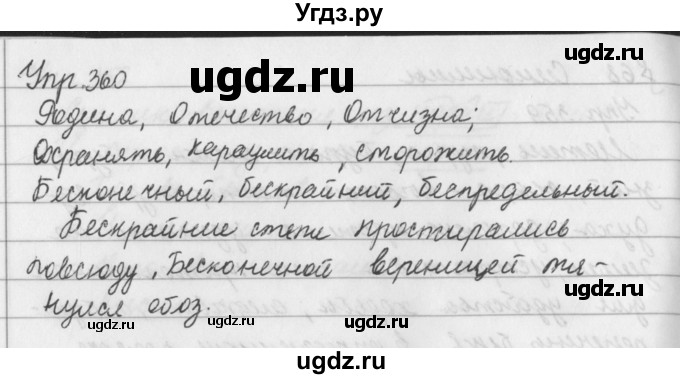 Угдз.ру
Упр. 360
Родина, Отечество, Отчизна;
Охранять, караулить, сторожить.
Бесконечный, бескрайний, беспредельный.
Бескрайние степи простирались
повсюду, Бесконечной вереницей тя-
нулся обоз.
ugdz.ru
ugdz.ru
ugdz.ru
ugdz.ru
ugdz.ru
ugdz.ru
ugdz.ru
ugdz.ru
ugdz.ru